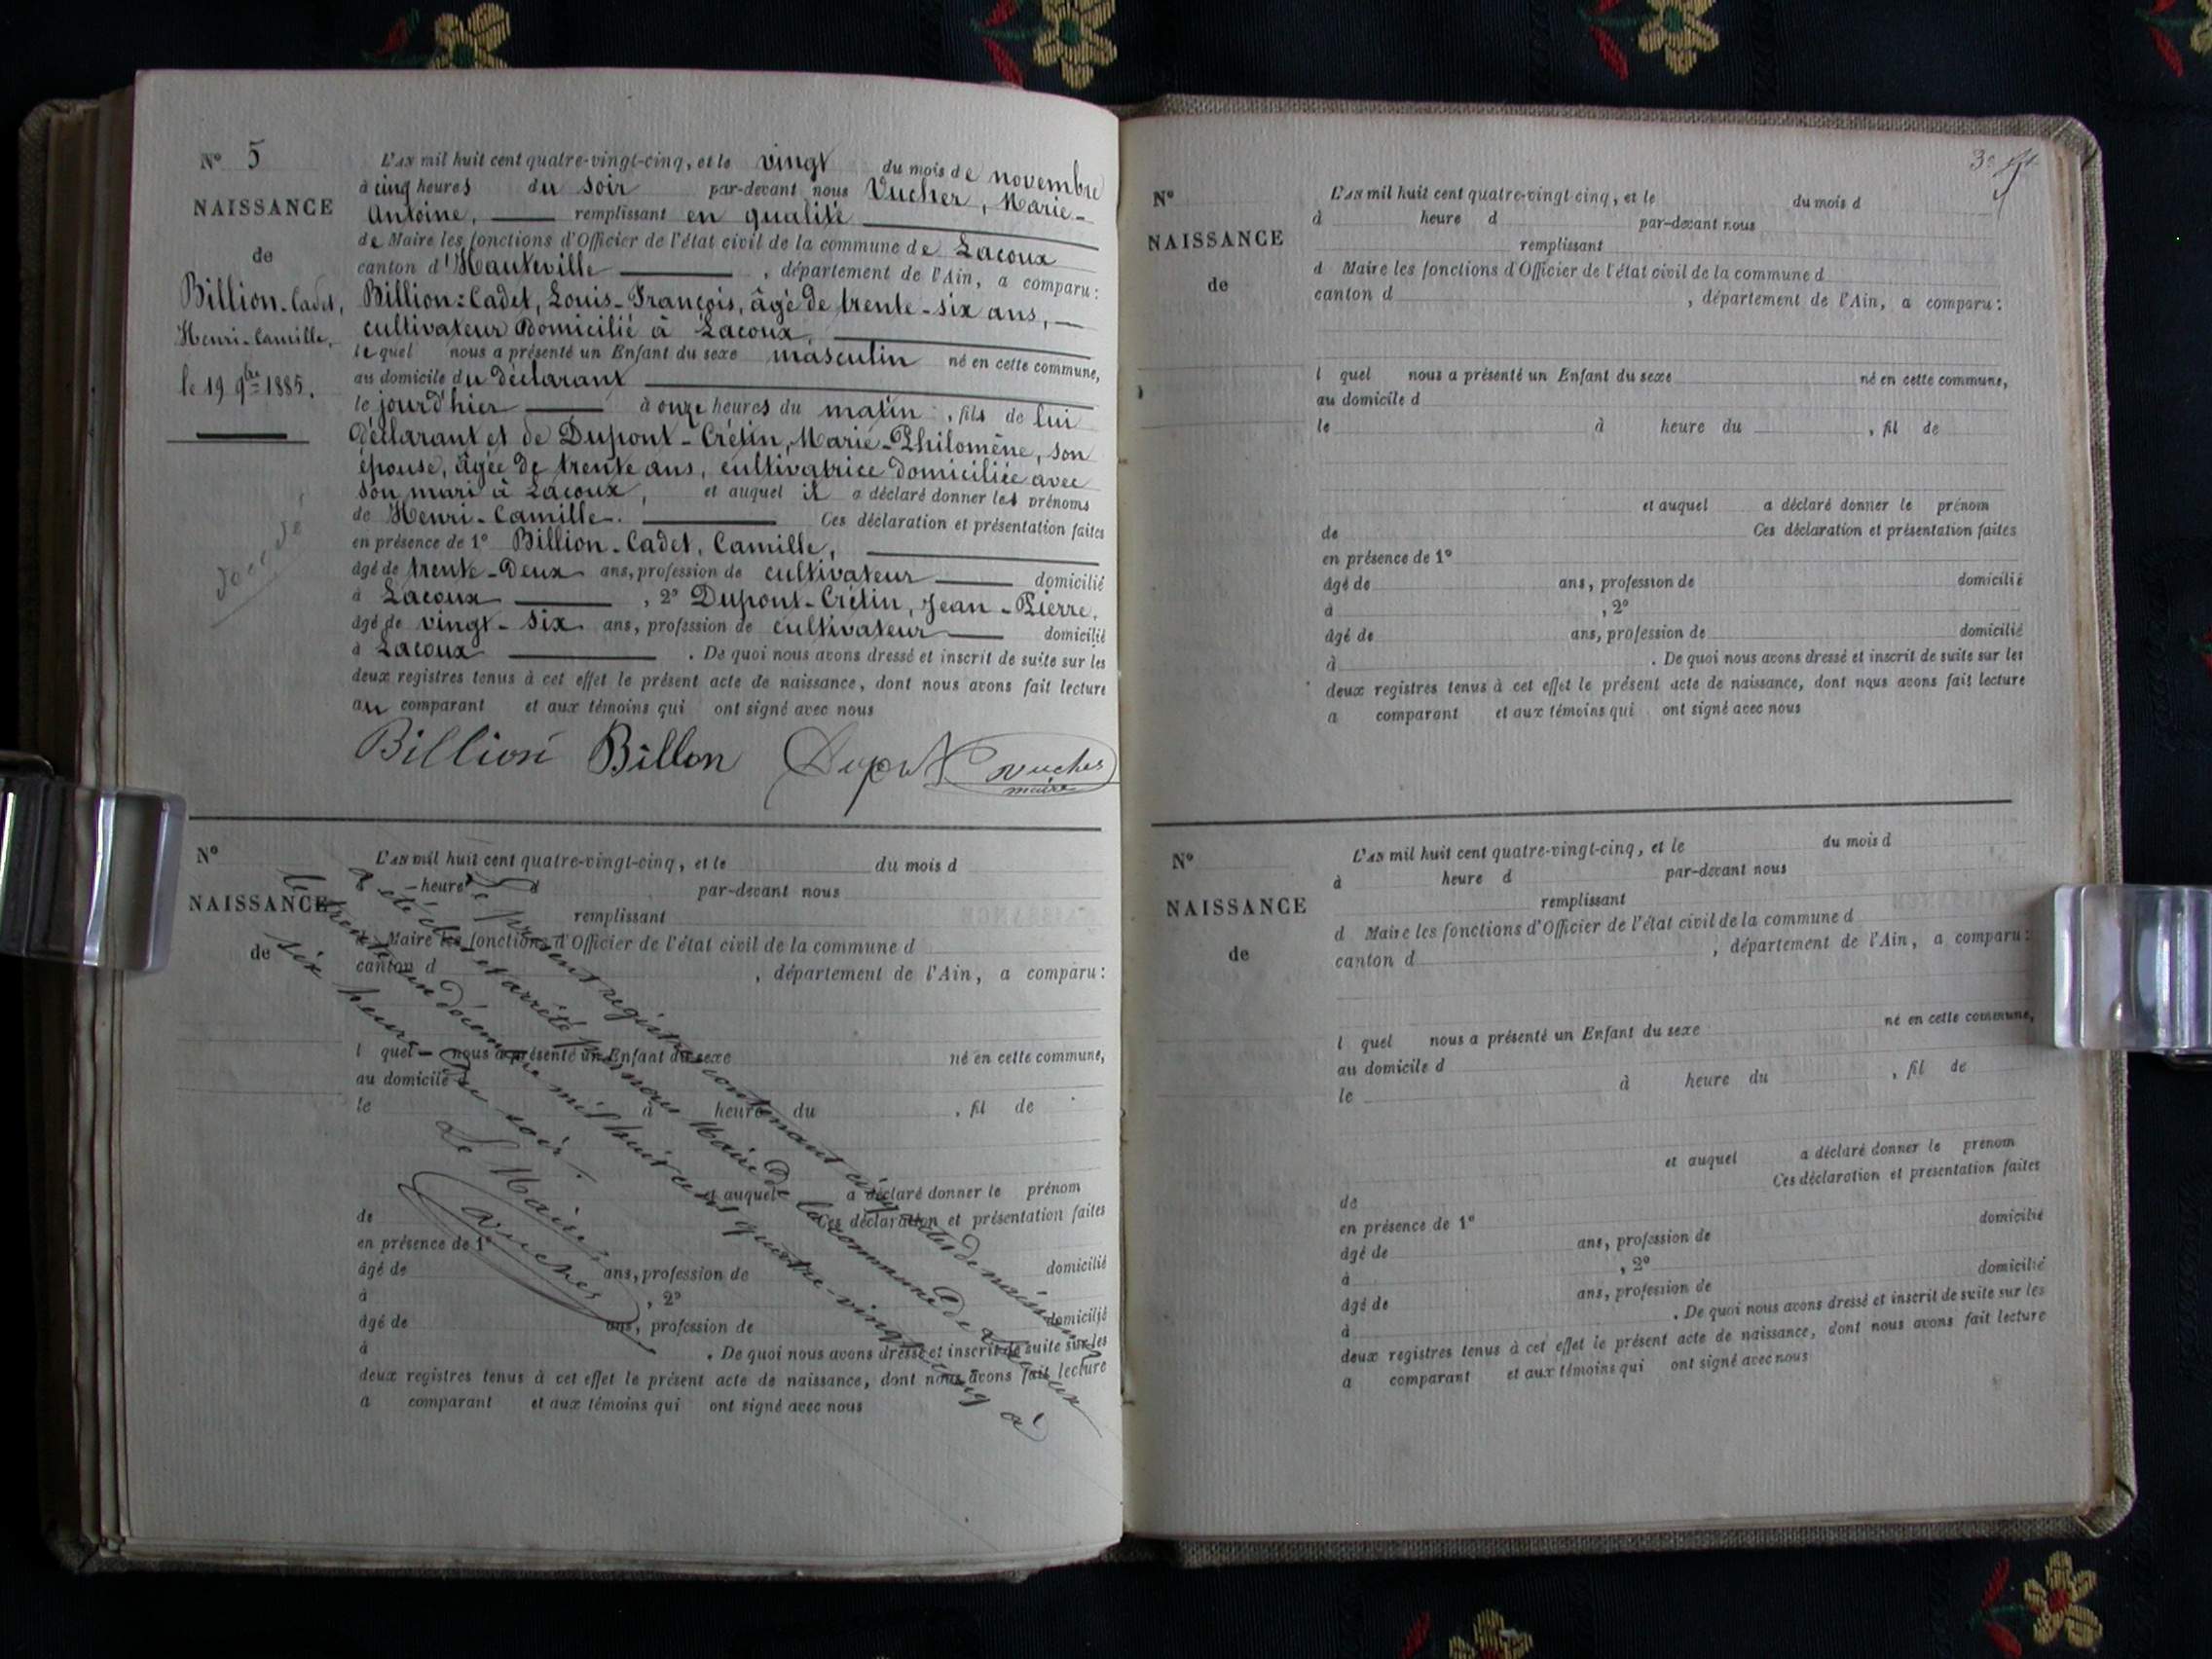 N° 5
NAISSANCE
de
Billion-Cadet,
Henri-Camille,
le 19 9bre 1885.
décédé
L'AN mil huit cent quatre-vingt-cinq, et le vingt du mois de novembre
à cinq heures du soir par-devant nous Vucher, Marie-
Antoine, remplissant en qualité
de Maire les fonctions d'Officier de l'état civil de la commune de Lacoux
canton d'Hauteville, département de l'Ain, a comparu:
Billion-Cadet, Louis-François, âgé de trente-six ans,
cultivateur domicilié à Lacoux,
lequel nous a présenté un Enfant du sexe masculin né en cette commune,
au domicile du déclarant
le jourd'hier à onze heures du matin, fils de lui
déclarant et de Dupont-Crétin, Marie-Philomène, son
épouse, âgée de trente ans, cultivatrice domiciliée avec
son mari à Lacoux, et auquel il a déclaré donner les prénoms
de Henri-Camille. Ces déclaration et présentation faites
en présence de 1° Billion-Cadet, Camille,
âgé de trente-deux ans, profession de cultivateur domicilié
à Lacoux, 2° Dupont-Crétin, Jean-Pierre,
âgé de vingt-six ans, profession de cultivateur domicilié
à Lacoux. De quoi nous avons dressé et inscrit de suite sur les
deux registres tenus à cet effet le présent acte de naissance, dont nous avons fait lecture
au comparant et aux témoins qui ont signé avec nous
Billion Billon Dupont Vucher
maire
N°
NAISSANCE
de
L'AN mil huit cent quatre-vingt-cinq, et le du mois d
heure d par-devant nous
remplissant
Maire les fonctions d'Officier de l'état civil de la commune d
canton d , département de l'Ain, a comparu:
l quel nous a présenté un Enfant du sexe né en cette commune,
au domicile d
le à heure du , fil de
et auquel a déclaré donner le prénom
de Ces déclaration et présentation faites
en présence de 1°
âgé de ans, profession de domicilié
à , 2°
âgé de ans, profession de domicilié
à . De quoi nous avons dressé et inscrit de suite sur les
deux registres tenus à cet effet le présent acte de naissance, dont nous avons fait lecture
a comparant et aux témoins qui ont signé avec nous
Le présent registre contenant cinq actes de naissance
a été clos et arrêté par nous Maire de la commune de Lacoux
le trente un décembre mil huit cent quatre-vingt-cinq à
six heures du soir.
Le Maire,
Vucher
N°
NAISSANCE
de
L'AN mil huit cent quatre-vingt-cinq, et le du mois d
à heure d par-devant nous
remplissant
d Maire les fonctions d'Officier de l'état civil de la commune d
canton d , département de l'Ain, a comparu:
l quel nous a présenté un Enfant du sexe né en cette commune,
au domicile d
le à heure du , fil de
et auquel a déclaré donner le prénom
de Ces déclaration et présentation faites
en présence de 1°
âgé de ans, profession de domicilié
à , 2°
âgé de ans, profession de domicilié
à . De quoi nous avons dressé et inscrit de suite sur les
deux registres tenus à cet effet le présent acte de naissance, dont nous avons fait lecture
a comparant et aux témoins qui ont signé avec nous
N°
NAISSANCE
de
L'AN mil huit cent quatre-vingt-cinq, et le du mois d
à heure d par-devant nous
remplissant
d Maire les fonctions d'Officier de l'état civil de la commune d
canton d , département de l'Ain, a comparu:
l quel nous a présenté un Enfant du sexe né en cette commune,
au domicile d
le à heure du , fil de
et auquel a déclaré donner le prénom
de Ces déclaration et présentation faites
en présence de 1°
âgé de ans, profession de domicilié
à , 2°
âgé de ans, profession de domicilié
à . De quoi nous avons dressé et inscrit de suite sur les
deux registres tenus à cet effet le présent acte de naissance, dont nous avons fait lecture
a comparant et aux témoins qui ont signé avec nous